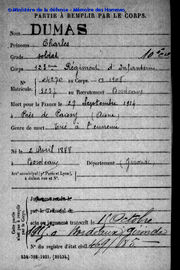 © Ministère de la défense - Mémoire des Hommes
PARTIE À REMPLIR PAR LE CORPS.
DUMAS
Prénoms Charles
Grade soldat
Corps 123me Régiment d'Infanterie
N° au Corps. — Cl. 1908
Matricule. au Recrutement Bordeaux
Mort pour la France le 17 septembre 1914
à Près de (Aisne)
Genre de mort Tué à l'ennemi
Né le Avril 1888
à Bordeaux Département Gironde
Arr' municipal (p' Paris et Lyon),
à défaut rue et N°.
par le Tribunal de
acte ou jugement transcrit le 1er Octobre
à Bordeaux Gironde
N° du registre d'état civil
534-708-1921. [26434.]